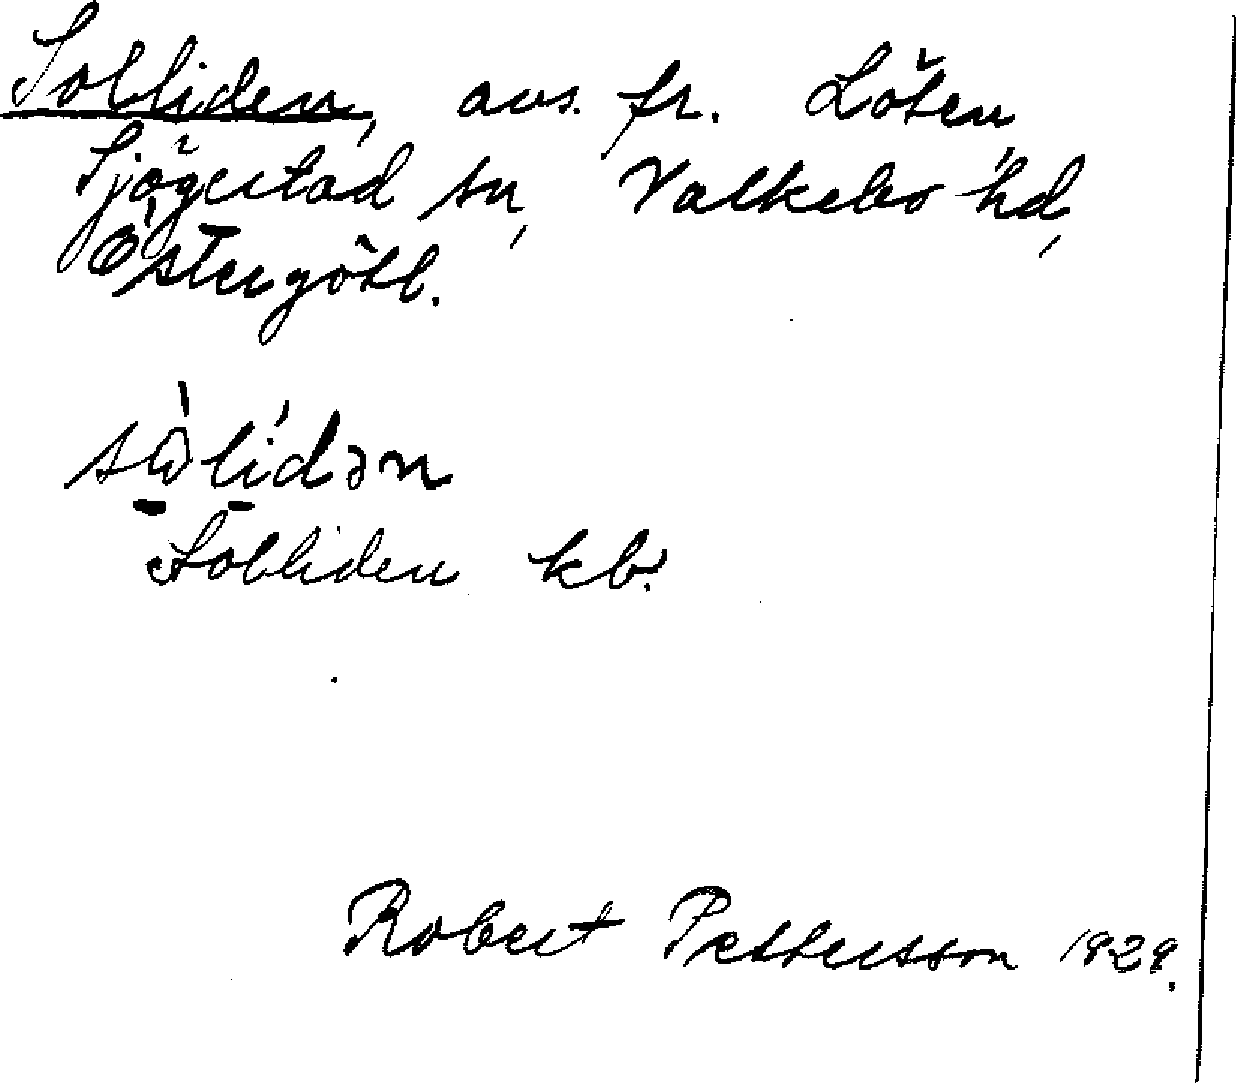 Solliden, avs. fr. Löten,
Sjögestad sn, Valkebo hd,
Östergötl.
sòlídən
Solliden kb.
Robert Pettersson 1929.